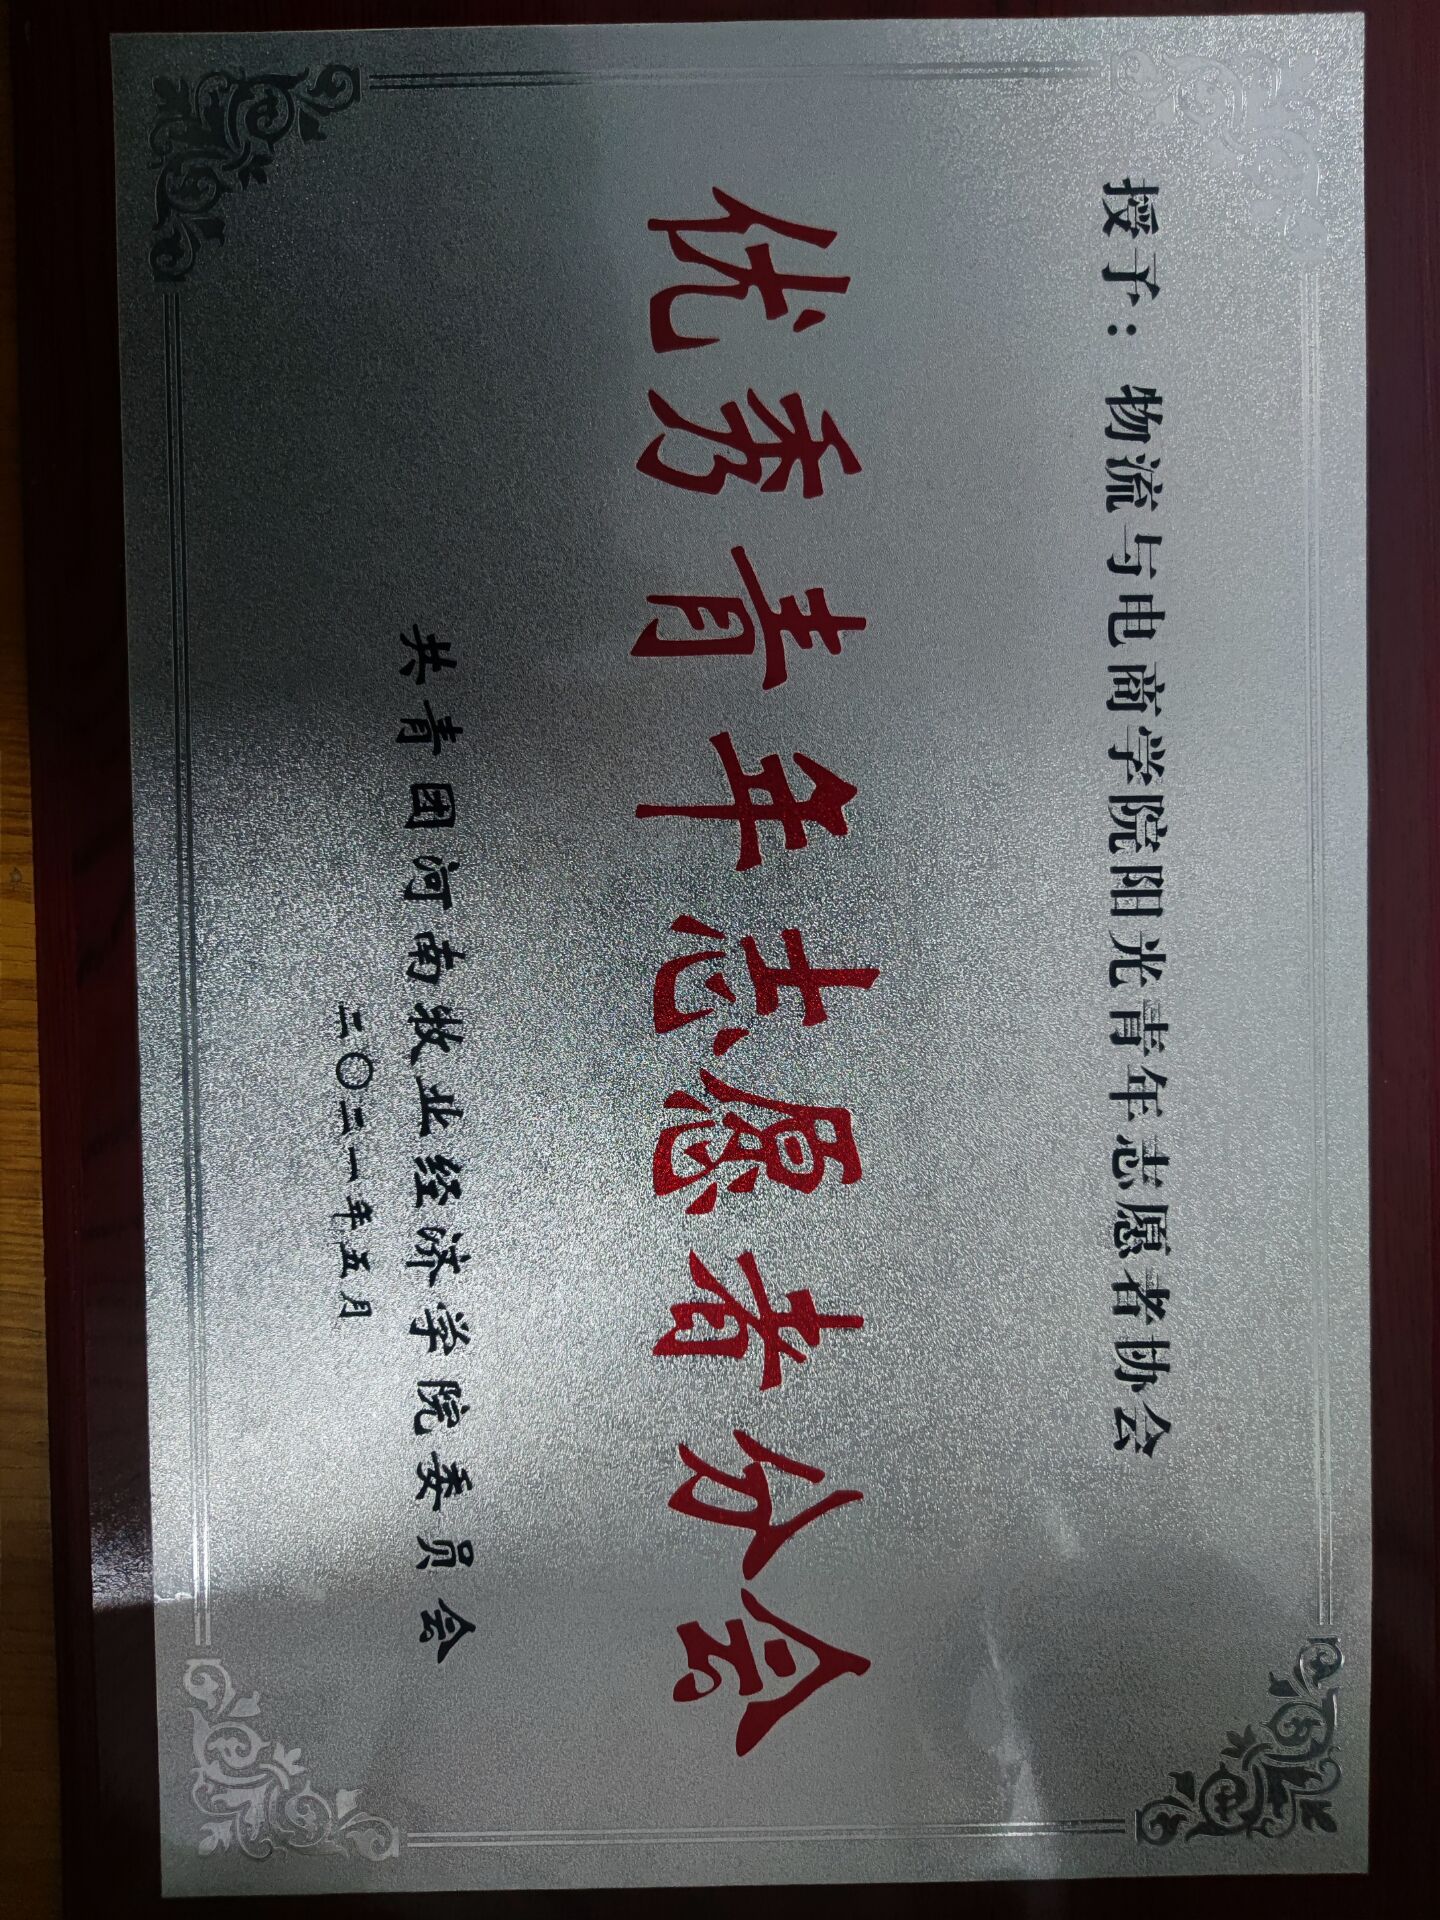 授予：物流与电商学院阳光青年志愿者协会
优秀青年志愿者分会
共青团河南牧业经济学院委员会
二〇二一年五月